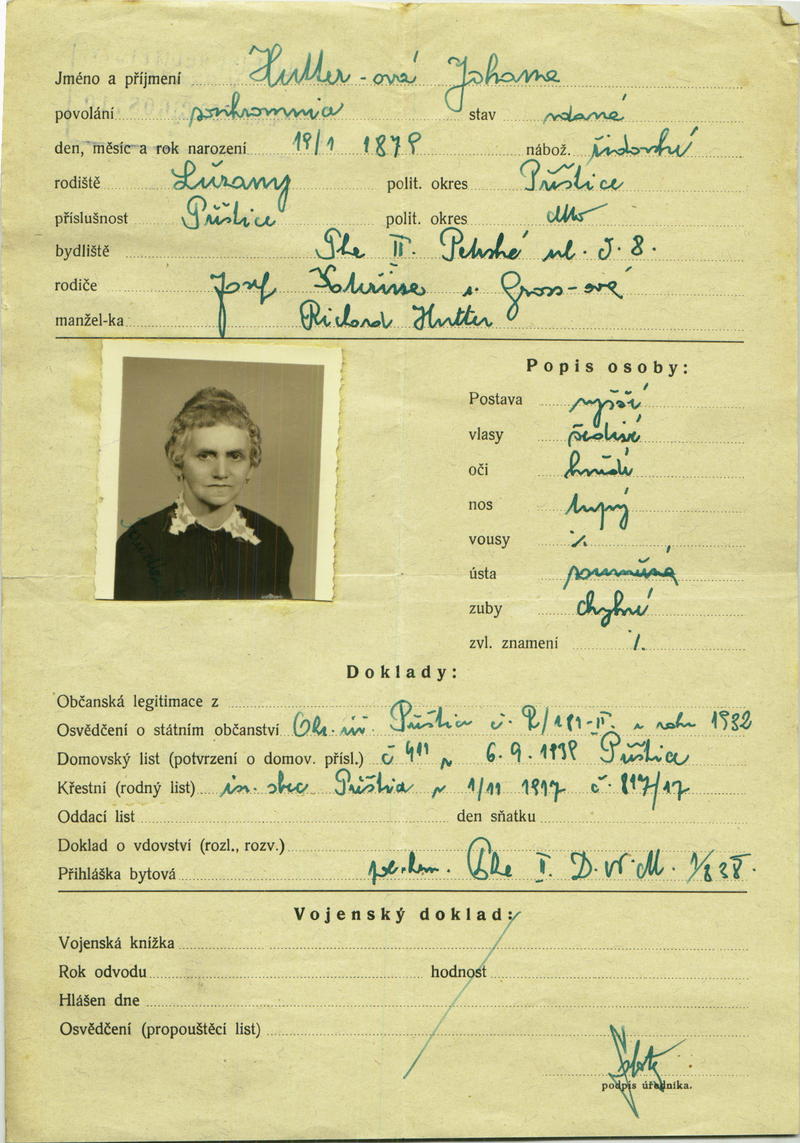 Jméno a příjmení Hutter-ová Johana
povolání soukromnice stav vdaná
den, měsíc a rok narození nábož. židovské
rodiště Lužany polit. okres Přeštice
příslušnost Přeštice polit. okres dtto
bydliště Phe II. Petrská ul. č. 8.
rodiče Josef a Gross-ová
manžel-ka Richard Hutter
Popis osoby:
Postava vyšší
vlasy šedivé
oči hnědé
nos tupý
vousy %
ústa souměrná
zuby chybné
zvl. znamení %
Doklady:
Občanská legitimace z
Osvědčení o státním občanství Okr. úř. Přeštice č. z roku 1932
Domovský list (potvrzení o domov. přísl.) č 6. 9. Přeštice
Křestní (rodný list) Přeštice 1/11 1917 č. 817/17
Oddací list den sňatku
Doklad o vdovství (rozl., rozv.)
Přihláška bytová Phe II.
Vojenský doklad:
Vojenská knížka
Rok odvodu hodnost
Hlášen dne
Osvědčení (propouštěcí list)
podpis úředníka.